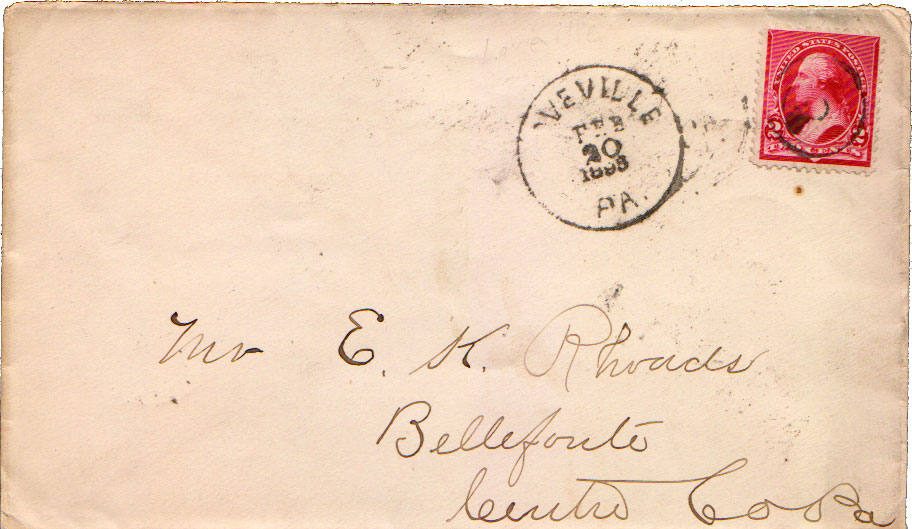 UNITED STATES POSTAGE
2 2
VEVILLE
FEB
20
1893
PA.
Mr E. K. Rhoads
Bellefonte
Centre Co Pa